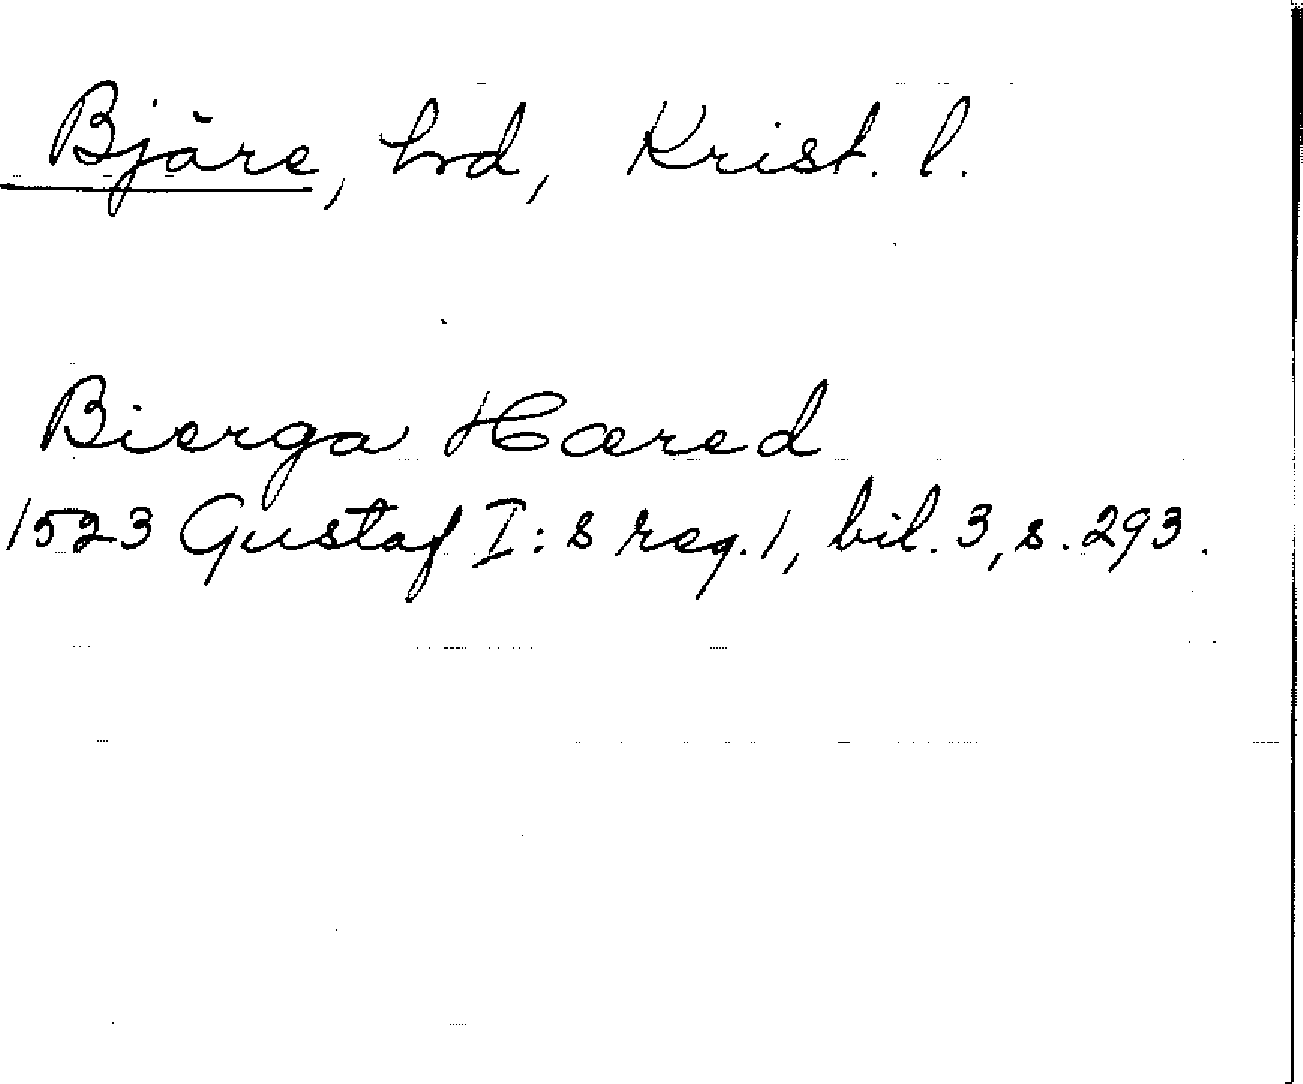 Bjäre, hrd, Krist. l.
Bierga Hæred
1523 Gustaf I:s reg. 1, bil. 3, s. 293.